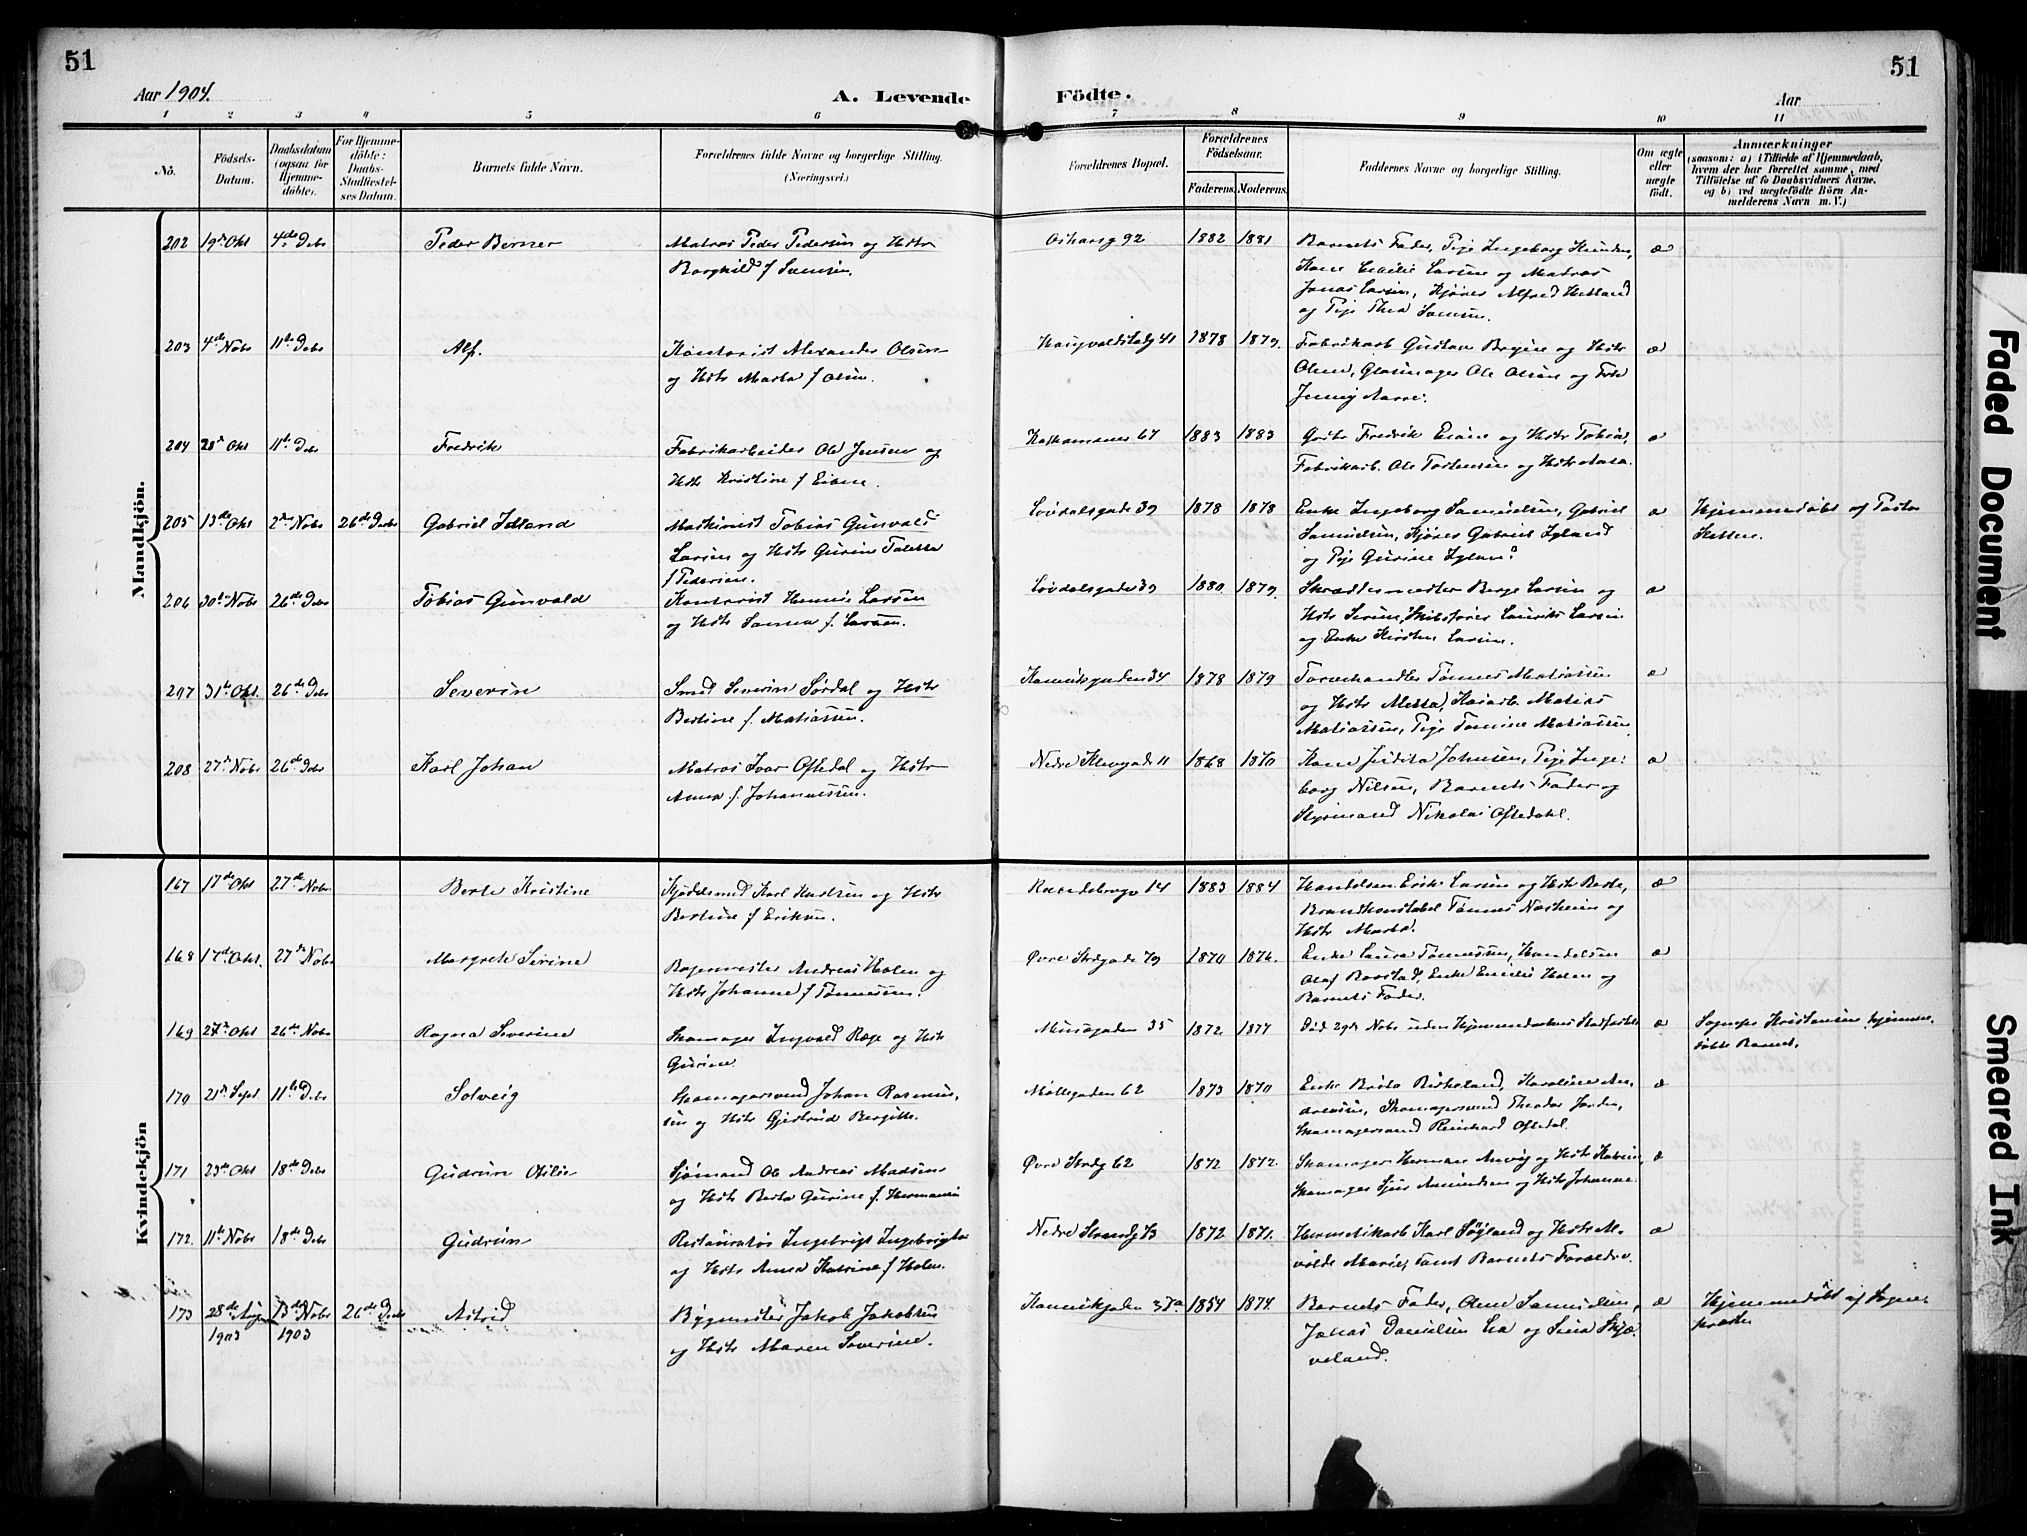 51
51
Aar 1904.
A. Levende
Födte.
Aar
1 2 3 4 5 6
7 8 9 10 11
No.
Födsels-
Datum.
Daabsdatum
(ogsaa for
Hjemme-
döbte).
For Hjemme-
döbte:
Daabs-
Stadfæstel-
ses Datum.
Barnets fulde Navn.
Forældrenes fulde Navne og borgerlige Stilling.
(Næringsvei.)
Forældrenes Bopæl.
Forældrenes
Födselsaar.
Faderens. Moderens.
Faddernes Navne og borgerlige Stilling.
Om ægte
eller
uægte
födt.
Anmærkninger
(saasom: a) i Tilfælde af Hjemmedaab,
hvem der har forrettet samme, med
Tilföielse af to Daabsvidners Navne,
og b) ved uægtefödte Börn An-
melderens Navn m. V.)
Mandkjön.
202 19de Okt 4de Decbr Peder Berner Matros Peder Pedersen og Hstr
Borghild f. Samsen.
Oskarsg 92 1882 1881 Barnets Fader, Pige Ingeborg
Kone Cecilie Larsen og Matros
Jonas Larsen, Kjører Alfred Hetland
og Pige Thea Samsen.
æ
203 4de Nobr 11te Decbr Alf. Kontorist Alexander Olsen
og Hstr Marta f. Olsen.
Haugvaldstadg 41 1878 1879. Fabrikarb Gustav Bryne og Hstr
Oline, Glasmager Ole Olsen og Frk
Jenny Aarre.
æ
204 28de Okt 11te Decbr Fredrik Fabrikarbeider Ole Jensen og
Hstr Kristine f Eiane.
67 1883 1883 Fredrik Eiane og Hstr Tobia,
Fabrikarb. Ole Torkensen og Hstr Aasa.
æ
205 13de Okt 2den Nobr 26de Decbr Gabriel Ydland Maskinist Tobias Gunvald
Larsen og Hstr Gurine Talette
f Pedersen.
Løvdalsgade 39 1878 1878 Enke Ingeborg Samuelsen, Gabriel
Samuelsen, Kjører Gabriel Lyland
og Pige Gurine Lyland
æ Hjemmedøbt af Pastor
206 30te Nobr 26de Decbr Tobias Gunvald Kontorist Hennes Larsen
og Hstr Sanna f. Larsen.
Løvdalsgade 39 1880 1879. Skrædermester Berge Larsen og
Hstr Serine, Skibsfører Lauritz Larsen
og Enke Kirsten Larsen.
æ
207 31te Okt. 26de Decbr Severin Smed Severin Sørdal og Hstr
Bertine f. Matiassen.
Kannikgaden 34 1878 1879 Torvehandler Tønnes Matiassen
og Hstr Metta, Havarb. Matias
Matiassen, Pige Tomine Matiassen
æ
208 27de Nobr 26de Decbr Karl Johan Matros Ivar Oftedal og Hstr
Anna f. Johannessen.
Nedre Klevgade 11 1868 1870 Kone Judita Johnsen, Pige Inge-
borg Nilsen, Barnets Fader og
Styrmand Nikolai Oftedahl.
æ
Kvindekjön
167 17de Okt 27de Nobr. Berte Kristine Kjøddsmed Karl Karlsen og Hstr
Bertine f Eriksen.
14 1883 1884 Handelsm. Erik Larsen og Hstr Berte,
Brandkonstabel Tønnes Næsheim og
Hstr Marta.
æ
168 17de Okt. 27de Nobr Margrete Serine Bogermester Andreas Holen og
Hstr Johanne f Tønnessen.
Øvre Strdgade 79 1870 1876. Enke Laura Tønnessen, Handelsm
Olaf Barstad, Enke Emelie Holen og
Barnets Fader.
æ
169 27de Okt 26de Nobr Ragna Severine Skomager Ingvald Rage og Hstr
Gurine.
Musegaden 35 1872. 1877 Død 29de Nobr uden Hjemmedaabens Stadfæstelse æ Sognepr Kristensen hjemme-
døbte Barnet.
170 21de Sept 11te Decbr Solveig Skomagersvend Johan Rasmus-
sen og Hstr Gjertrud Bergitte.
Møllegaden 62 1873 1870 Enke Berta Birkeland, Karoline An-
dreassen, Skomagersvend Theodor Jorden,
Skomagersvend Reinhard Oftedal.
æ
171 23de Okt 18de Decbr Gudrun Otilie Sjømand Ole Andreas Madsen
og Hstr Berta Gurine f. Hermansen
Øvre Strdg 62 1872 1872. Skomager Herman Anvig og Hstr Katrine,
Skomager Sjur Amundsen og Hstr Johanne.
æ
172. 11te Nobr 18de Decbr Gudrun Restauratør Ingebrigt Ingebrigtsen
og Hstr Anna Katrine f Holen.
Nedre Strandg 73 1872 1871. Hermetikarb Karl Søyland og Hstr M-
valde Marie, samt Barnets Forældre.
æ
173 28de Aug 13de Nobr 26de Decbr Astrid Bygmester Jakob Jakobsen
1903 1903
og Hstr Maren Severine.
Kannikgaden 37a 1854 1874. Barnets Fader, Oline Samuelsen,
Jonas Danielsen Lea og Sina Skjæ-
veland.
æ Hjemmedøbt af Sogne-
præsten
Faded Document
Smeared Ink